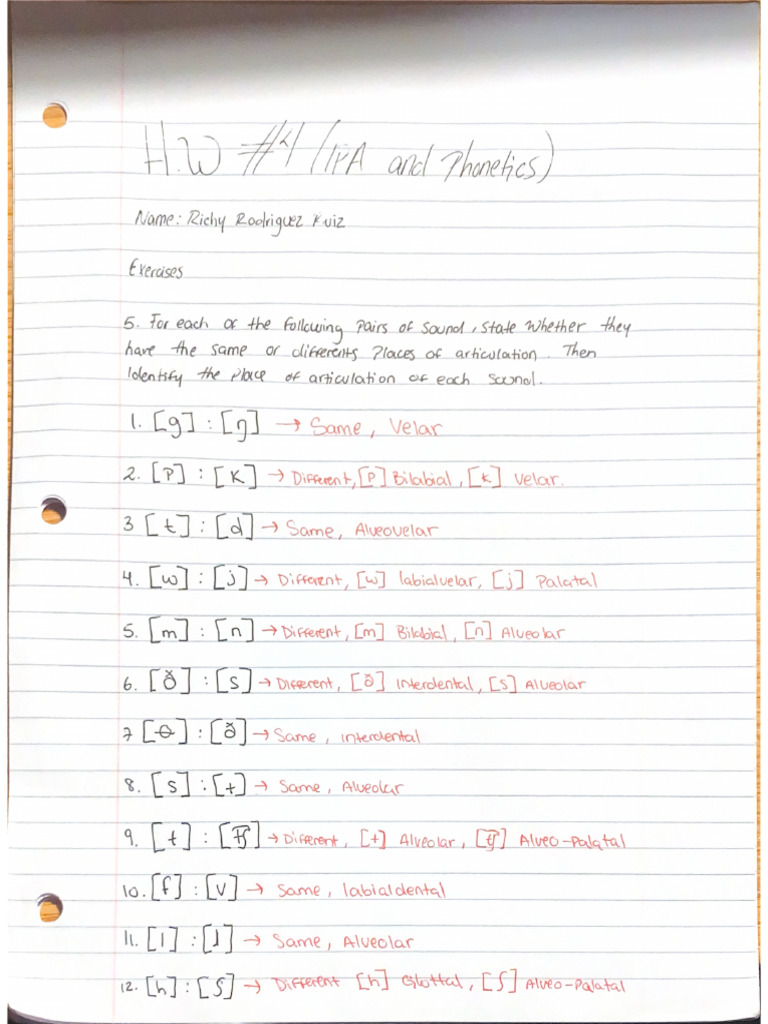 H.W #4 (IPA and Phonetics)
Name: Richy Rodriguez Ruiz
Exercises
5. For each of the following Pairs of sound, state whether they
have the same or differents Places of articulation. Then
Identify the place of articulation of each sound.
1. [g] : [ŋ] → Same, Velar
2. [P] : [K] → Different, [P] Bilabial, [k] Velar.
3 [t] : [d] → Same, Alveovelar
4. [w] : [j] → Different, [w] labialvelar, [j] Palatal
5. [m] : [n] → Different, [m] Bilabial, [n] Alveolar
6. [ð] : [s] → Different, [ð] Interdental, [s] Alveolar
7 [θ] : [ð] → Same, interdental
8. [s] : [t] → Same, Alveolar
9. [t] : [t͡ʃ] → Different, [t] Alveolar, [t͡ʃ] Alveo-Palatal
10. [f] : [v] → Same, labialdental
11. [l] : [ɹ] → Same, Alveolar
12. [h] : [ʃ] → Different [h] Glottal, [ʃ] Alveo-Palatal